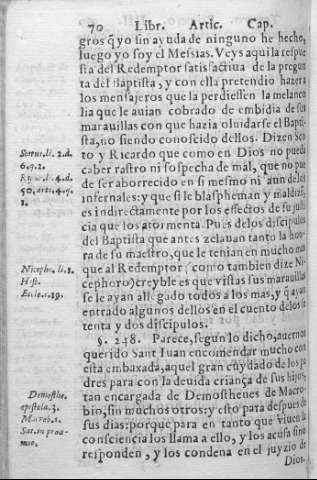 70 Libr. Artic. Cap.
gros q̃ yo sin ayuda de ninguno he hecho,
luego yo soy el Messias. Veys aqui la respue
sta del Redemptor satisfactiua de la pregun
ta del Baptista, y con ella pretendio hazer a
los mensajeros que la perdiessen la melanco
lia que le auian cobrado de embidia de sus
marauillas con que hazia oluidarse el Bapti-
sta, no siendo conoscido dellos. Dizen Sco
to y Ricardo que como en Dios no puede
caber rastro ni sospecha de mal, que no pue
de ser aborrecido en si mesmo ni aun de los
infernales: y que si le blaspheman y maldizẽ,
es indirectamente por los effectos de su justi
cia que los atormenta. Pues de los discipulos
del Baptista que antes zelauan tanto la hon-
ra de su maestro, que le tenian en mucho mas
que al Redemptor, (como tambien dize Ni-
cephoro) creyble es que vistas sus marauillas
se le ayan allegado todos a los mas, y q̃ ayan
entrado algunos dellos en el cuento de los se
tenta y dos discipulos.
§. 248. Parece, segun lo dicho, auernos
querido Sant Iuan encomendar mucho con
esta embaxada, aquel gran cuydado de los pa
dres para con la deuida criança de sus hijos,
tan encargada de Demosthenes de Macro-
bio, sin muchos otros: y esto para despues de
sus dias: porque para en tanto que viuen la
consciencia los llama a ello, y los acusa si no
responden, y los condena en el juyzio de
Dios.
Scotus, li. 2. d.
6. q. 2.
li. 4. d.
50. art. 4. q.
Nicepho. li. 1.
Hist.
Eccle. c. 19.
Demosthe.
epistola. 3.
Macrob. 1.
Sat. in proe-
mio.